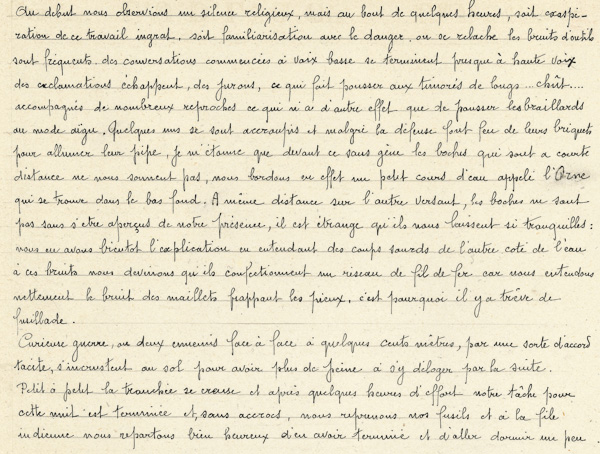 Au début nous observions un silence religieux, mais au bout de quelques heures, soit exaspé-
ration de ce travail ingrat. soit familiarisation avec le danger, on se relache les bruits d'outils
sont fréquents. des conversations commencées à voix basse se terminent presque à haute voix
des exclamations échappent, des jurons, ce qui fait pousser aux timorés de longs ... chût....
accompagnés de nombreux reproches ce qui n'a d'autre effet que de pousser les braillards
au mode aigu. Quelques uns se sont accroupis et malgré la défense font feu de leurs briquets
pour allumer leur pipe, Je m'étonne que devant ce sans gène les boches qui sont a courte
distance ne nous sonnent pas, nous bordons en effet un petit cours d'eau appelé l'Orne
qui se trouve dans le bas fond. A même distance sur l'autre versant, les boches ne sont
pas sans s'être aperçus de notre présence, il est étrange qu'ils nous laissent si tranquilles :
nous en avons bientot l'explication en entendant des coups sourds de l'autre coté de l'eau
à ces bruits nous devinons qu'ils confectionnent un réseau de fil de fer car nous entendons
nettement le bruit des maillets frappant les pieux, c'est pourquoi il y a trève de
fusillade.
Curieuse guerre, ou deux ennemis face à face à quelques cents mètres, par une sorte d'accord
tacite, s'incrustent au sol pour avoir plus de peine à s'y déloger par la suite.
Petit à petit la tranchée se creuse et après quelques heures d'effort notre tâche pour
cette nuit est terminée et sans accrocs, nous reprenons nos fusils et à la file
indienne nous repartons bien heureux d'en avoir terminé et d'aller dormir un peu.